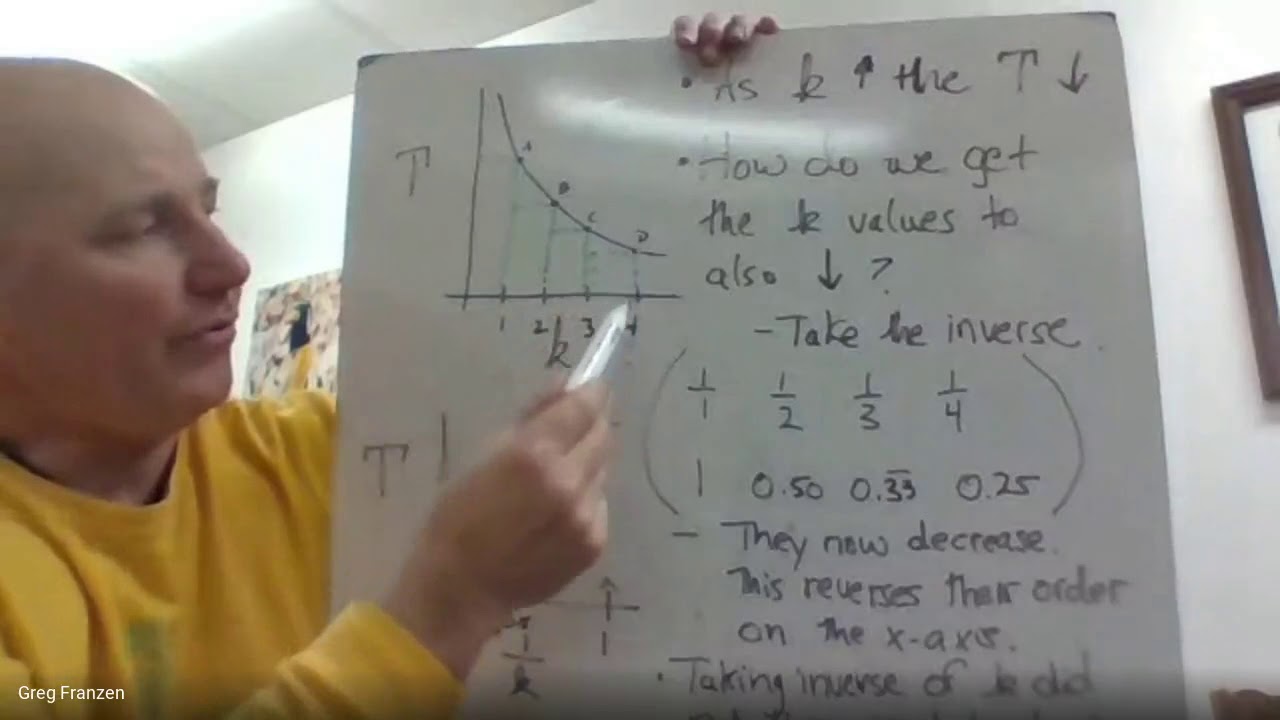 • As k ↑ the T ↓
T
A
B
C
D
1 2 3 4
k
• How do we get
the k values to
also ↓ ?
- Take the inverse.
1/1 1/2 1/3 1/4
1 0.50 0.33̅ 0.25
T
- They now decrease.
This reverses their order
on the x-axis.
1
1/k
• Taking inverse of k did
Greg Franzen